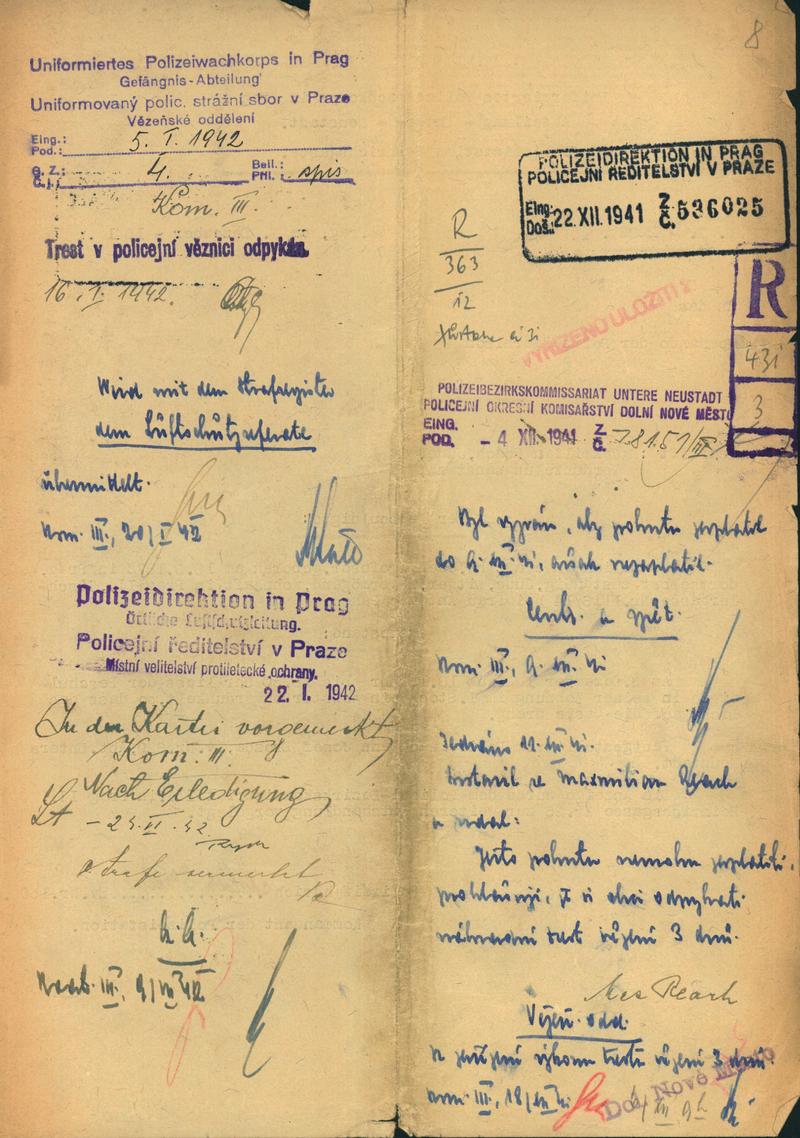 Uniformiertes Polizeiwachkorps in Prag
Gefängnis-Abteilung
Uniformovaný polic. strážní sbor v Praze
Vězeňské oddělení
Eing.:
Pod.: 5. I. 1942
G. Z.: Beil.:
Č. j.: 4. Příl.: spis
Kom. III.
Trest v policejní věznici odpykán.
16. I. 1942.
Wird mit dem Strafregister
dem Luftschutzreferate
übermittelt.
Kom. III, 20/I 42
Polizeidirektion in Prag
Örtliche Luftschutzleitung.
Policejní ředitelství v Praze
Místní velitelství protiletecké ochrany.
22. I. 1942
In der Kartei vorgemerkt
Kom. III.
Nach Erledigung
Strafe vermerkt
a. a.
8
POLIZEIDIREKTION IN PRAG
POLICEJNÍ ŘEDITELSTVÍ V PRAZE
Eing.:
Doš.: 22. XII. 1941 Z. Č. 536025
R
363
12
VYŘÍZENO ULOŽITI
R
431
3
POLIZEIBEZIRKSKOMMISSARIAT UNTERE NEUSTADT
POLICEJNÍ OKRESNÍ KOMISAŘSTVÍ DOLNÍ NOVÉ MĚSTO
EING.
POD. - 4 XII. 1941 Z. Č. 78151/III
Byl vyzván, aby pokutu zaplatil
do 9. XII. 41, avšak nezaplatil.
a zpět.
Kom. III, 9. XII. 41
Jednáno 11. XII. 41.
Dostavil se Maximilian Reach
a udal:
Jsto pokutu nemohu zaplatiti,
prohlašuji, že si chci odpykati
náhradní trest vězení 3 dnů.
Max Reach
Vězeň. odd.
k zařízení výkonu trestu vězení 3 dnů.
Kom. III, 18/XII 41
Dol. Nové Město